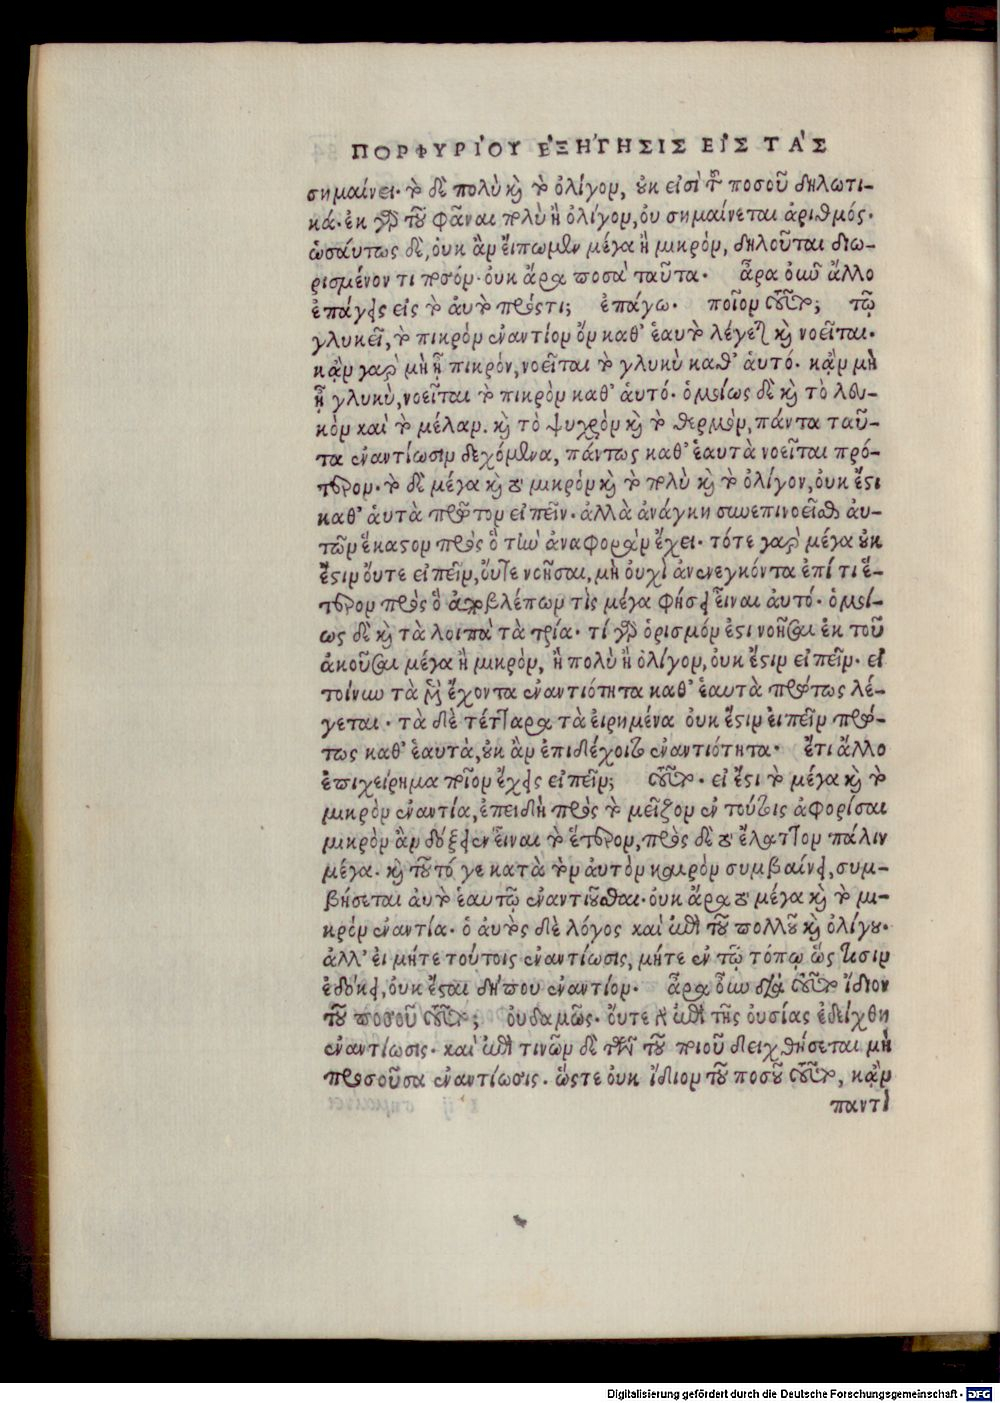 ΠΟΡΦΥΡΊΟΥ ἘΞΗΓΗΣΙΣ ΕΙ͂Σ ΤᾺΣ
σημαίνει· τὸ δὲ πολὺ καὶ τὸ ὀλίγον, οὐκ εἰσὶ τοῦ ποσοῦ δηλωτι-
κά· ἐκ γὰρ τοῦ φᾶναι πολὺ ἢ ὀλίγον, οὐ σημαίνεται ἀριθμός·
ὡσάυτως δὲ, ὀυκ ἂν ἔιπωμεν μέγα ἢ μικρὸν, δηλοῦται διω-
ρισμένον τι ποσόν· ὀυκ ἄρα ποσὰ ταῦτα· ἆρα ὀιῶ ἄλλο
ἐπάγεις εἰς τὸ ἀυτὸ πρός τι; ἐπάγω· ποῖον τοῦτο; τῷ
γλυκεῖ, τὸ πικρὸν ἐναντίον ὂν καθ’ ἑαυτὸ λέγεται καὶ νοεῖται·
κἂν γὰρ μὴ ᾖ πικρόν, νοεῖται τὸ γλυκὺ καθ’ ἁυτό· κἂν μὴ
ᾖ γλυκὺ, νοεῖται τὸ πικρὸν καθ’ ἁυτό· ὁμοίως δὲ καὶ τὸ λευ-
κὸν καὶ τὸ μέλαν. καὶ τὸ ψυχρὸν καὶ τὸ θερμὸν, πάντα ταῦ-
τα ἐναντίωσιν δεχόμενα, πάντως καθ’ ἑαυτὰ νοεῖται πρό-
τερον· τὸ δὲ μέγα καὶ τὸ μικρὸν καὶ τὸ πολὺ καὶ τὸ ὀλίγον, ὀυκ ἔστι
καθ’ ἁυτὰ πρῶτον εἰπεῖν· ἀλλὰ ἀνάγκη συνεπινοεῖσθαι ἀυ-
τῶν ἕκαστον πρὸς ὃ τὴν ἀναφορὰν ἔχει· τότε γὰρ μέγα οὐκ
ἔστιν ὄυτε εἰπεῖν, ὄυτε νοῆσαι, μὴ ὀυχὶ ἀνενεγκόντα ἐπί τι ἕ-
τερον πρὸς ὃ ἀποβλέπων τὶς μέγα φήσει εἶναι ἀυτό· ὁμοί-
ως δὲ καὶ τὰ λοιπὰ τὰ τρία· τί γὰρ ὁρισμόν ἐστι νοῆσαι ἐκ τοῦ
ἀκοῦσαι μέγα ἢ μικρὸν, ἢ πολὺ ἢ ὀλίγον, ὀυκ ἔστιν εἰπεῖν· εἰ
τοίνυν τὰ μὲν ἔχοντα ἐναντιότητα καθ’ ἑαυτὰ πρώτως λέ-
γεται· τὰ δὲ τέτταρα τὰ ἐιρημένα ὀυκ ἔστιν ἐιπεῖν πρώ-
τως καθ’ ἑαυτὰ, οὐκ ἂν ἐπιδέχοιτο ἐναντιότητα· ἔτι ἄλλο
ἐπιχείρημα ποῖον ἔχεις εἰπεῖν; τοῦτο· εἰ ἔστι τὸ μέγα καὶ τὸ
μικρὸν ἐναντία, ἐπειδὴ πρὸς τὸ μεῖζον ἐν τούτοις ἀφορίσαι
μικρὸν ἂν δόξειεν εἶναι τὸ ἕτερον, πρὸς δὲ τὸ ἔλαττον πάλιν
μέγα· καὶ τοῦτό γε κατὰ τὸν ἀυτὸν καιρὸν συμβαίνει, συμ-
βήσεται ἀυτὸ ἑαυτῷ ἐναντιοῦσθαι· ὀυκ ἄρα τὸ μέγα καὶ τὸ μι-
κρὸν ἐναντία· ὁ ἀυτὸς δὲ λόγος καὶ ἐπὶ τοῦ πολλοῦ καὶ ὀλίγου·
ἀλλ’ ἐι μήτε τούτοις ἐναντίωσις, μήτε ἐν τῷ τόπῳ ὥς τισιν
ἐδόκει, ὀυκ ἔσται δήπου ἐναντίον· ἆρα ὀῦν διὰ τοῦτο ἴδιον
τοῦ ποσοῦ τοῦτο; ὀυδαμῶς· ὄυτε γὰρ ἐπὶ τῆς ὀυσίας ἐδείχθη
ἐναντίωσις· καὶ ἐπὶ τινῶν δὲ τῶν τοῦ ποιοῦ δειχθήσεται μὴ
προσοῦσα ἐναντίωσις. ὥστε ὀυκ ἴδιον τοῦ ποσοῦ τοῦτο, κἂν
παντὶ
Digitalisierung gefördert durch die Deutsche Forschungsgemeinschaft · DFG